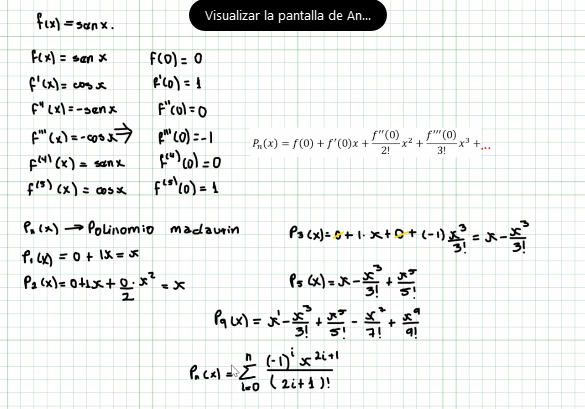 Visualizar la pantalla de An...
f(x) = sen x.
f(x) = sen x   f(0) = 0
f'(x) = cos x   f'(0) = 1
f''(x) = -sen x   f''(0) = 0
f'''(x) = -cos x ⇒ f'''(0) = -1
Pₙ(x) = f(0) + f'(0)x + f''(0)/2! x² + f'''(0)/3! x³ + ...
f⁽⁴⁾(x) = sen x   f⁽⁴⁾(0) = 0
f⁽⁵⁾(x) = cos x   f⁽⁵⁾(0) = 1
Pₙ(x) → Polinomio maclaurin
P₁(x) = 0 + 1x = x
P₂(x) = 0+1x + 0/2 · x² = x
P₃(x) = 0 + 1·x + 0 + (-1) x³/3! = x - x³/3!
P₅(x) = x - x³/3! + x⁵/5!
P₉(x) = x¹ - x³/3! + x⁵/5! - x⁷/7! + x⁹/9!
Pₙ(x) = ∑ i=0 n (-1)ⁱ x²ⁱ⁺¹ / (2i+1)!